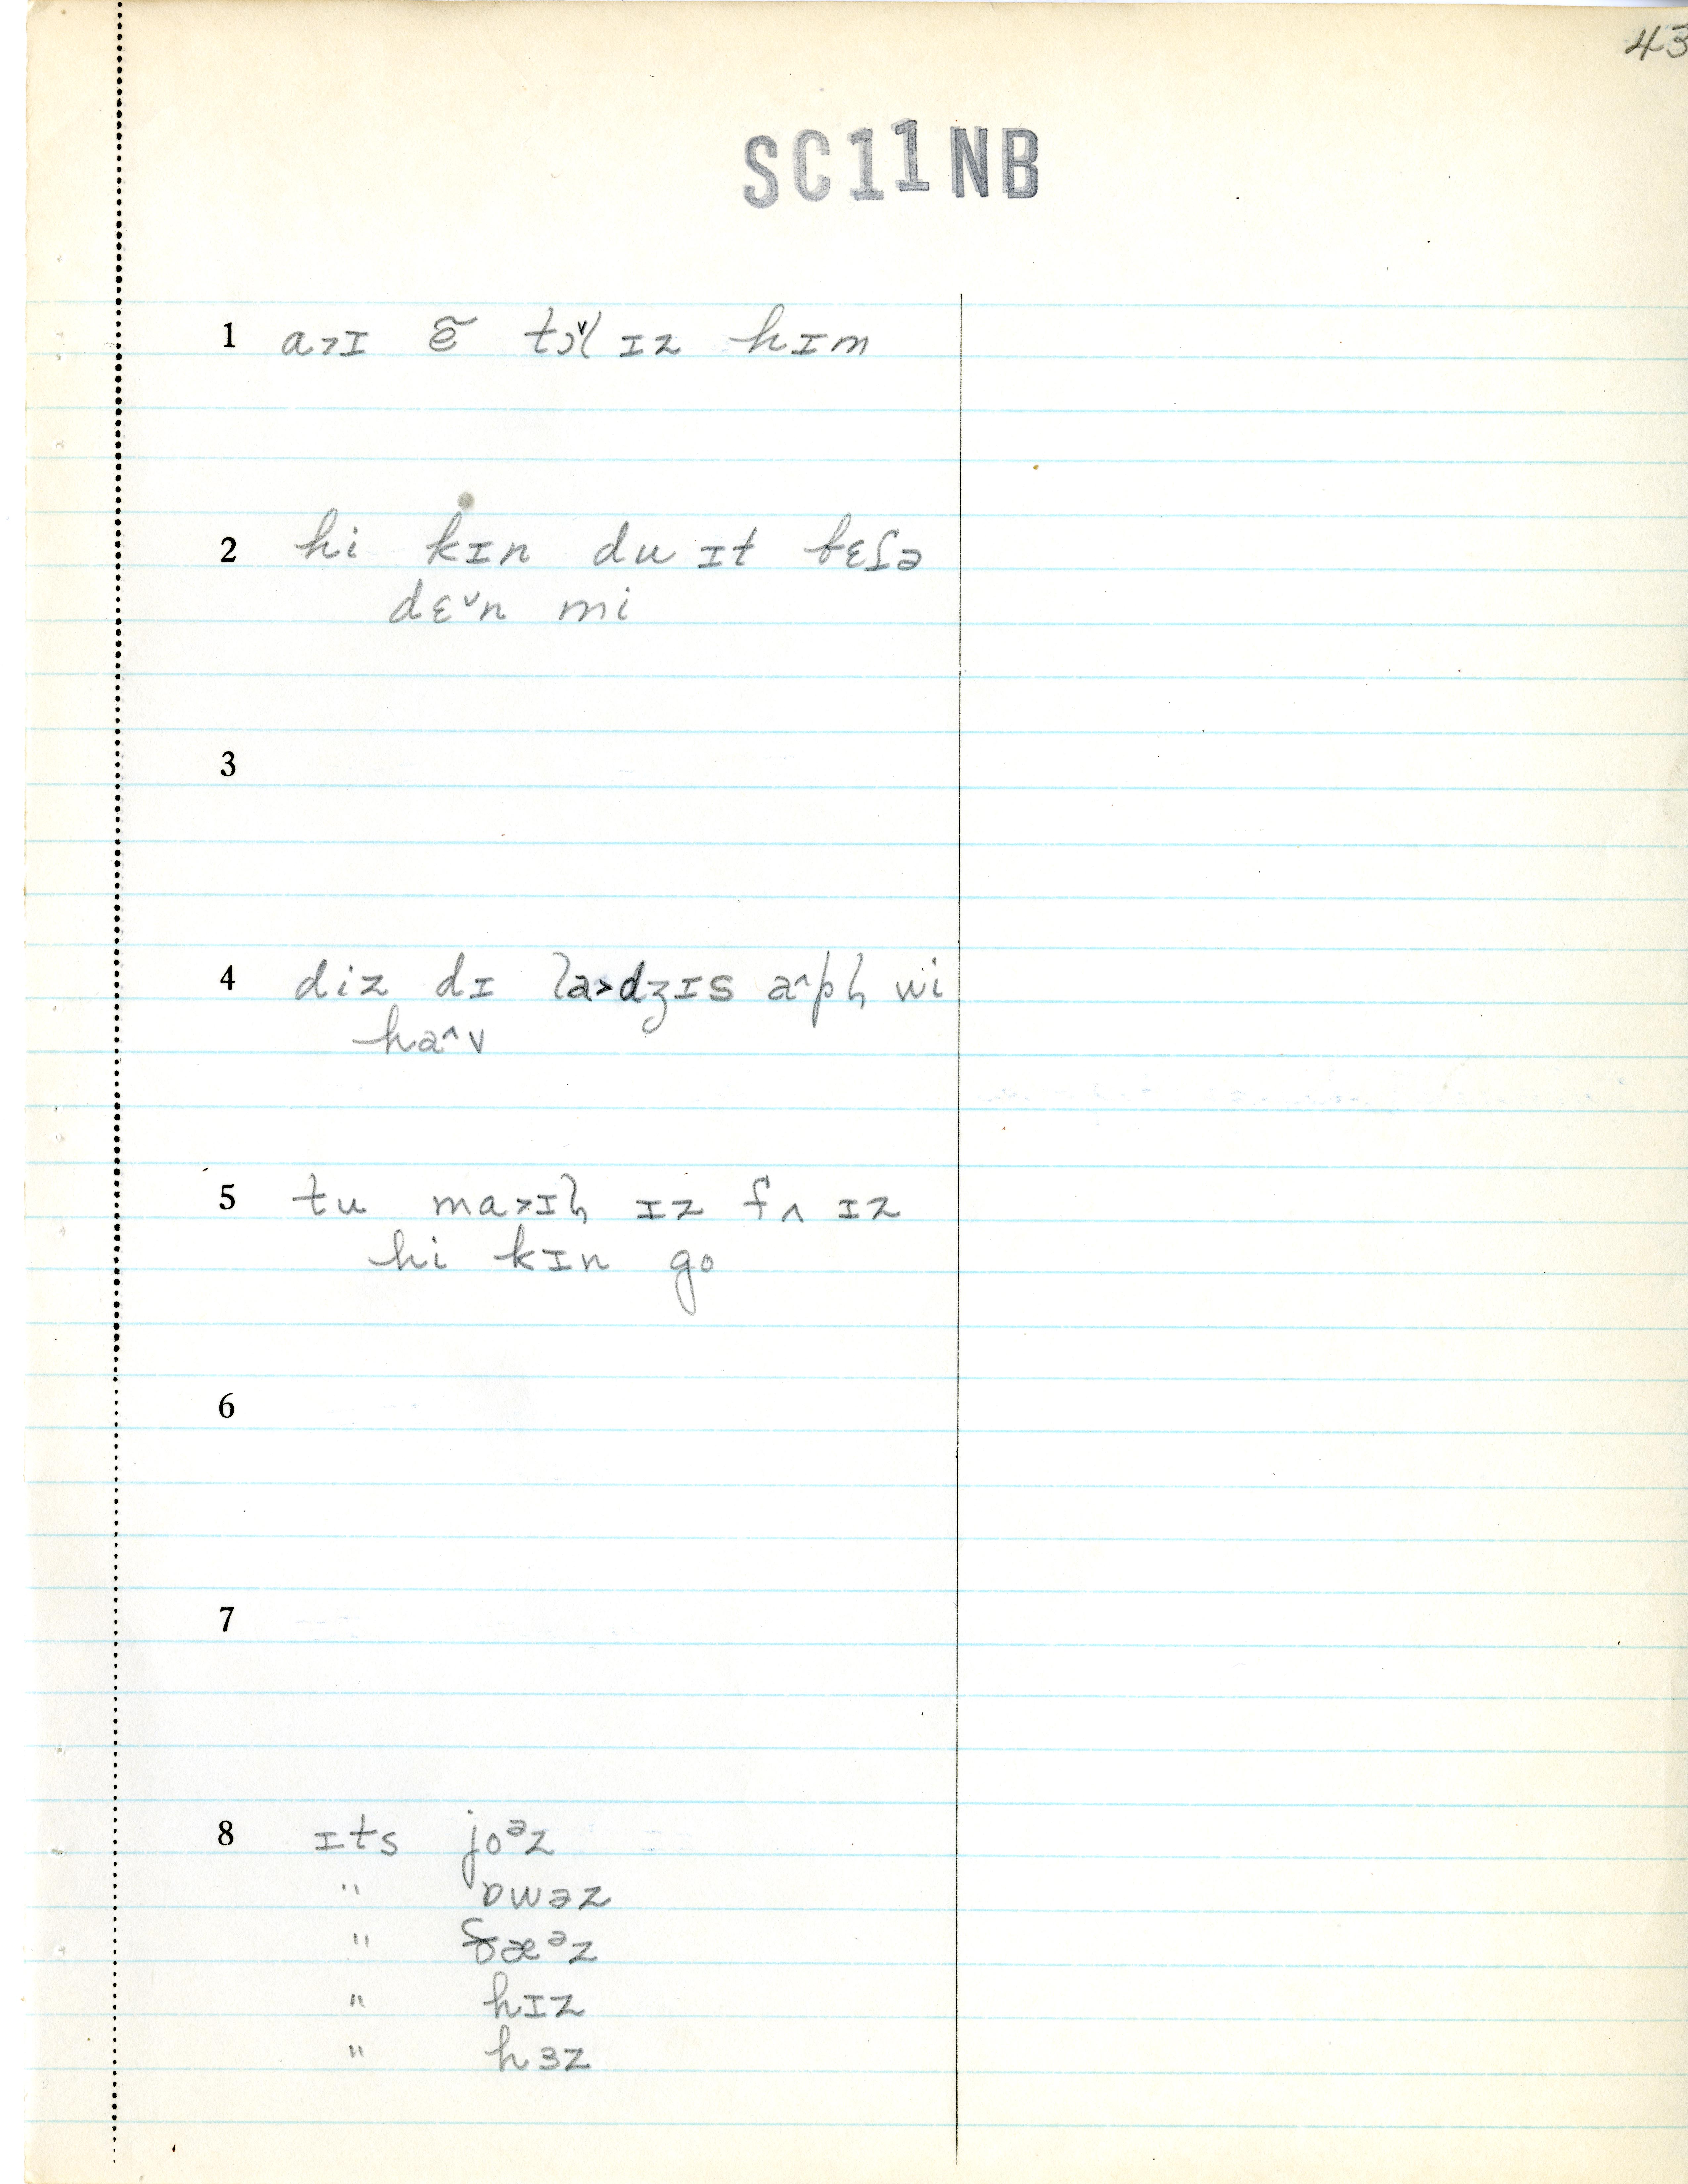 43
SC11NB
1 a˃ɪ ẽ tɔ˅l ɪz hɪm
2 hi kɪn du ɪt bɛſə
dɛ˅n mi
3
4 diz dɪ la˃dʒɪs a^pɫ wi
ha^v
5 tu ma˃ɪɫ ɪz fʌ ɪz
hi kɪn go
6
7
8 ɪts joᵊz
" ɒwəz
" ðæᵊz
" hɪz
" hɜz